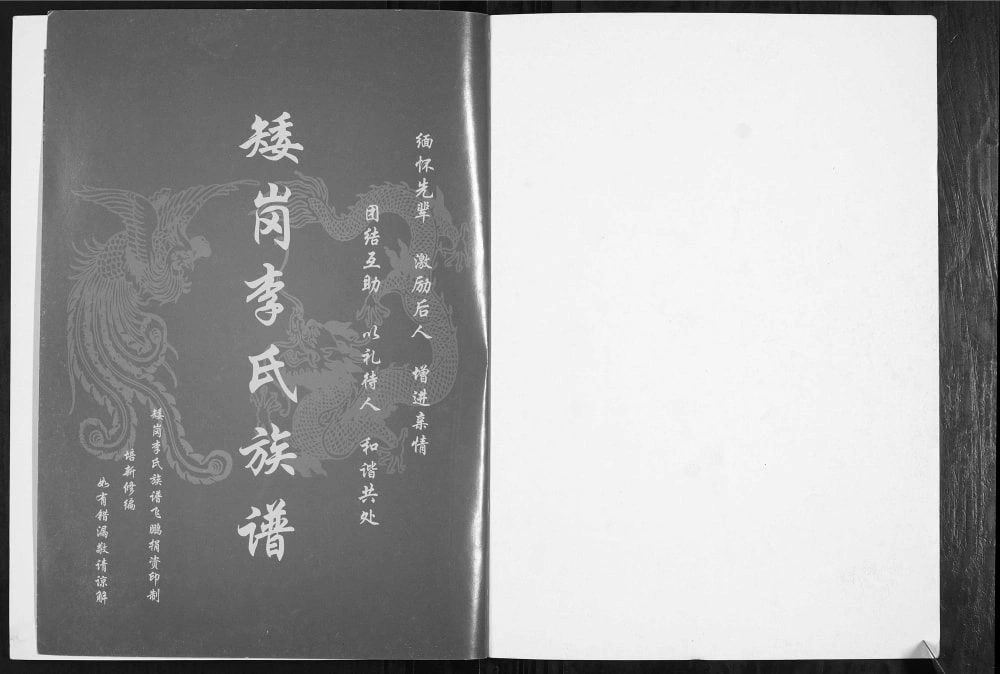 缅怀先辈 激励后人 增进亲情
团结互助 以礼待人 和谐共处
矮岗李氏族谱
矮岗李氏族谱飞鹏捐资印制
培新修编
如有错漏敬请谅解